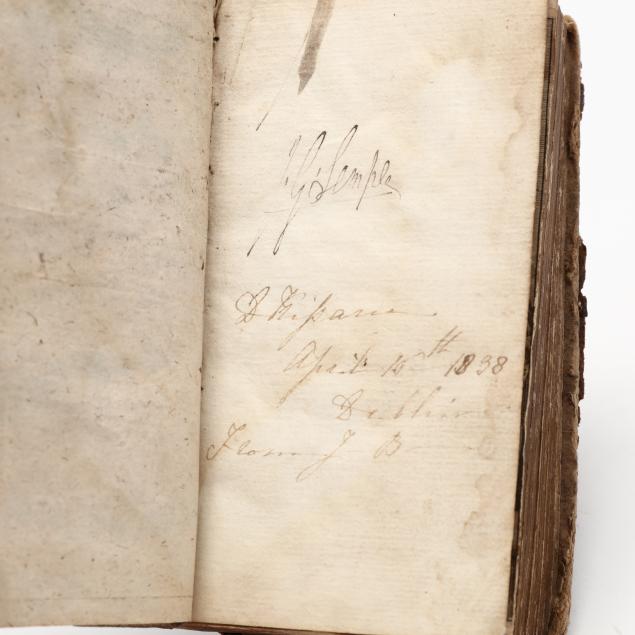 J G Semple
D Kissam
April 15th 1838
Dublin
From J B